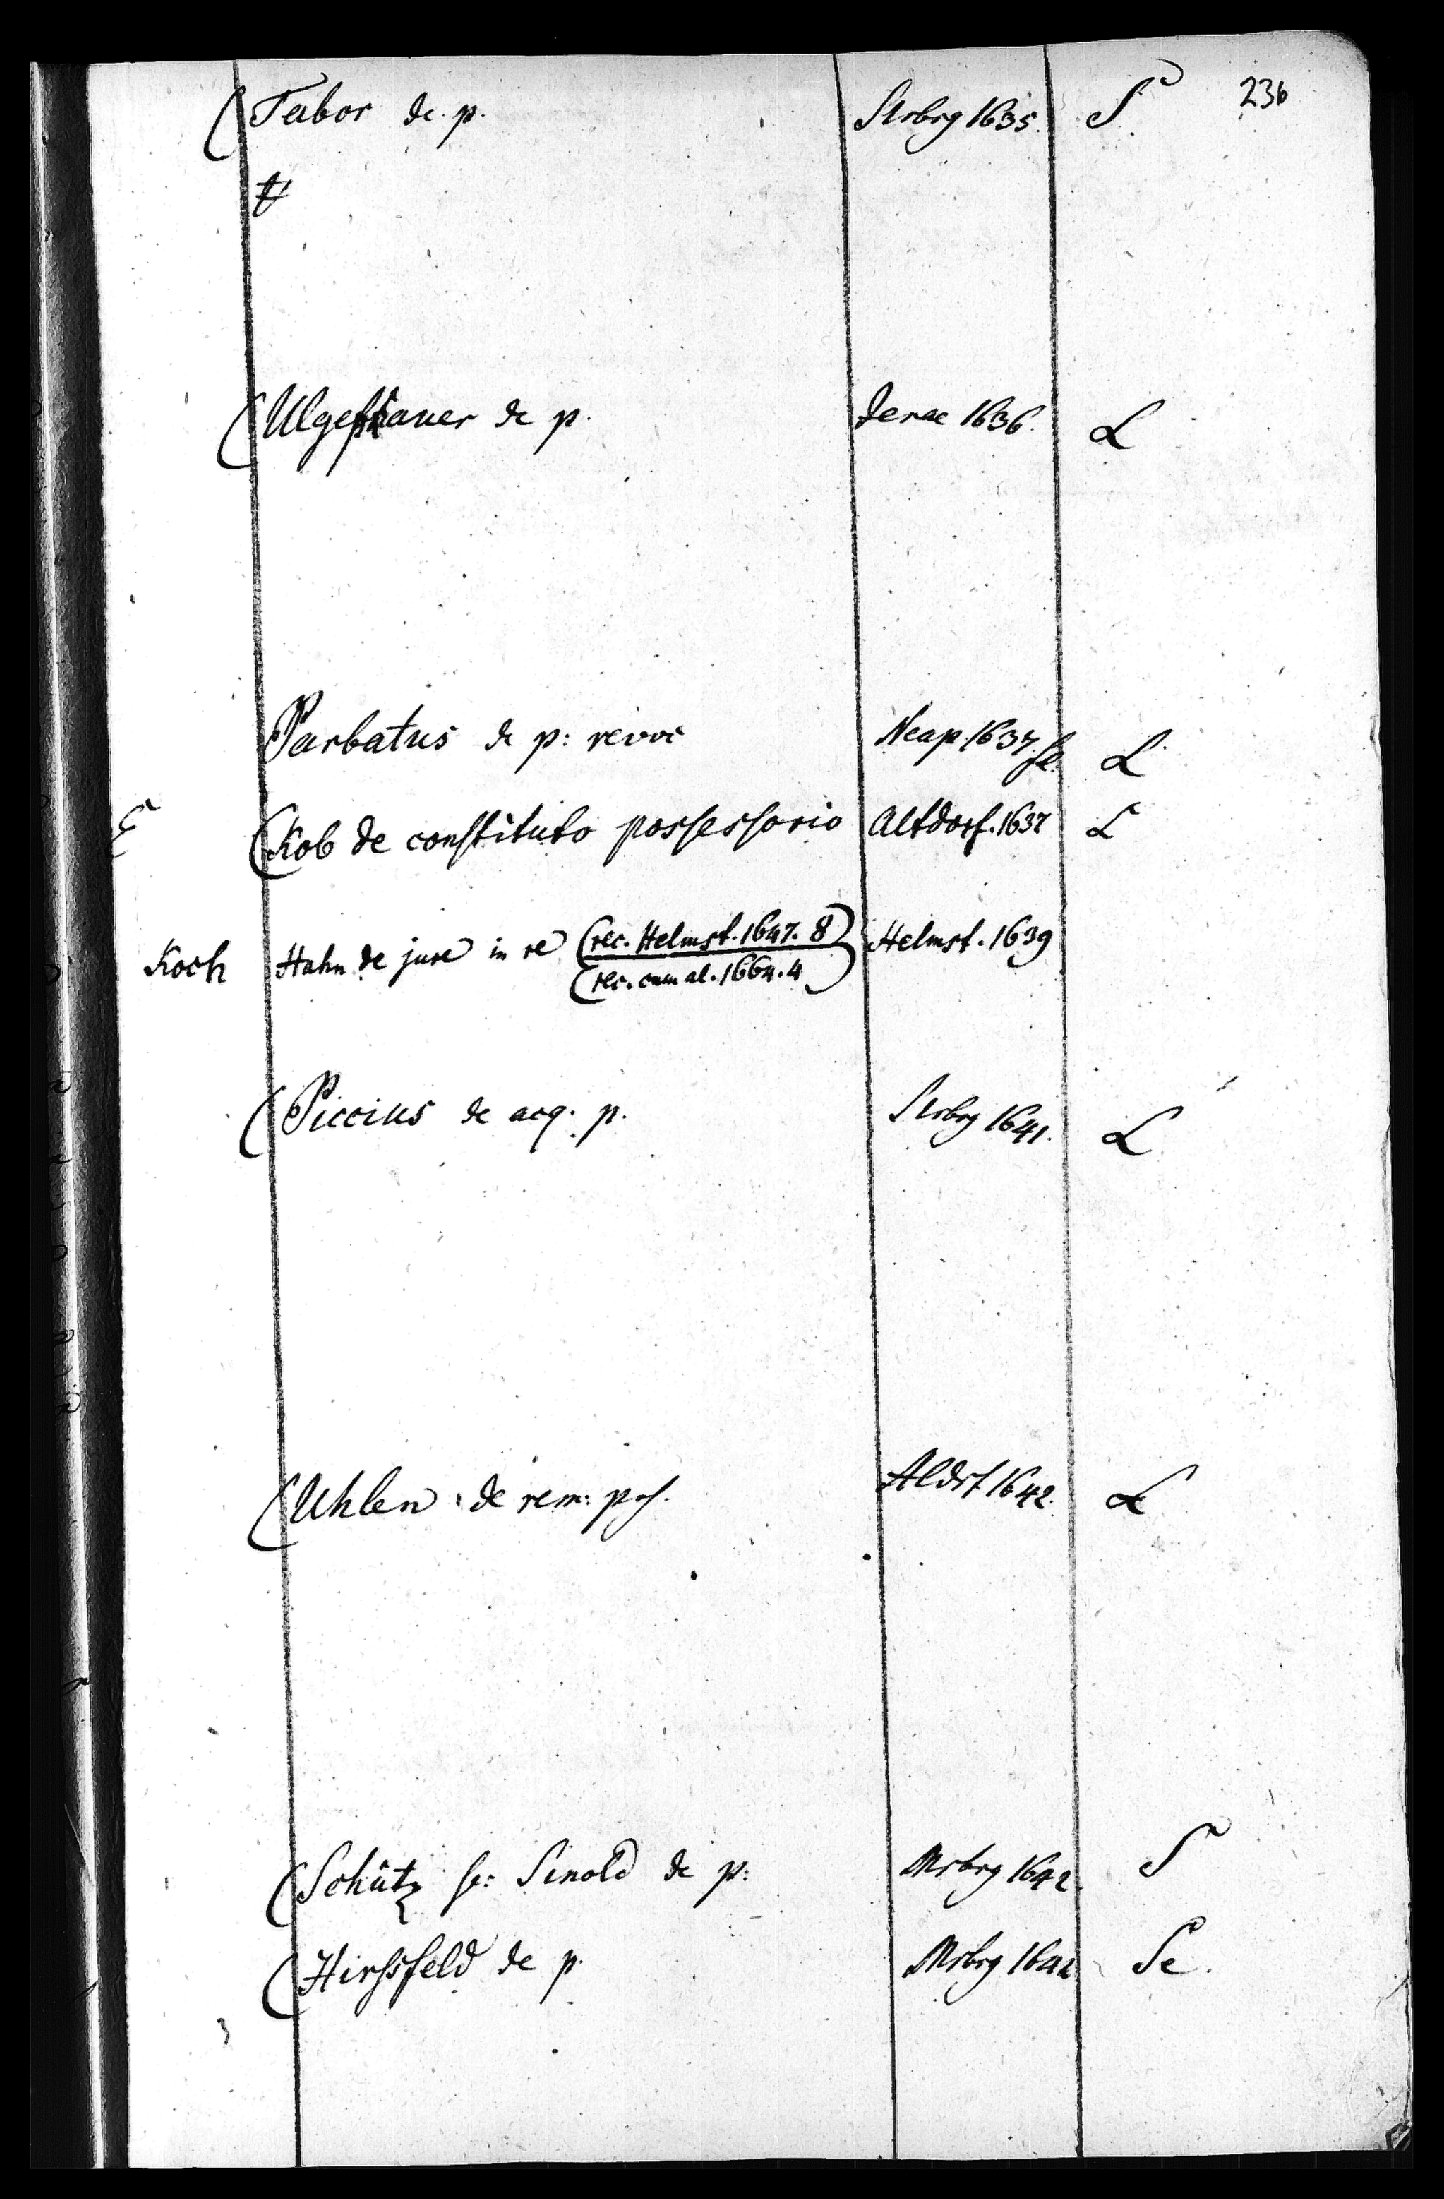 236
(Tabor de. p. Strbrg 1635. S
(Ulgeshauer de p. Jenae 1636. L
Parbatus de p: revoc Neap. 1637. fe. L
(Kob de constituto possessorio Altdorf. 1637 L
Koch Hahn de jure in re (rec. Helmst. 1647. 8) Helmst. 1639
(rec. cum al. 1664. 4)
(Piccius de acq. p. Strbrg 1641. L
(Uhlen de rem: poss. Aldrf 1642. L
(Schütz s: Sinold de p: Mrbrg 1642 S
(Hirssfeld de p. Mrbrg 1642 Se.